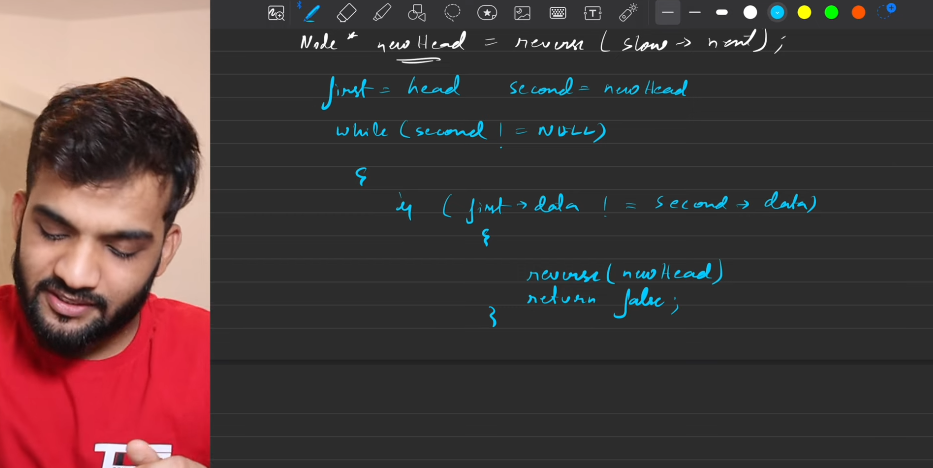 Node * newHead = reverse ( slow → next ) ;
first = head second = newHead
while ( second ! = NULL )
{
if ( first → data ! = second → data )
{
reverse ( newHead )
return false ;
}